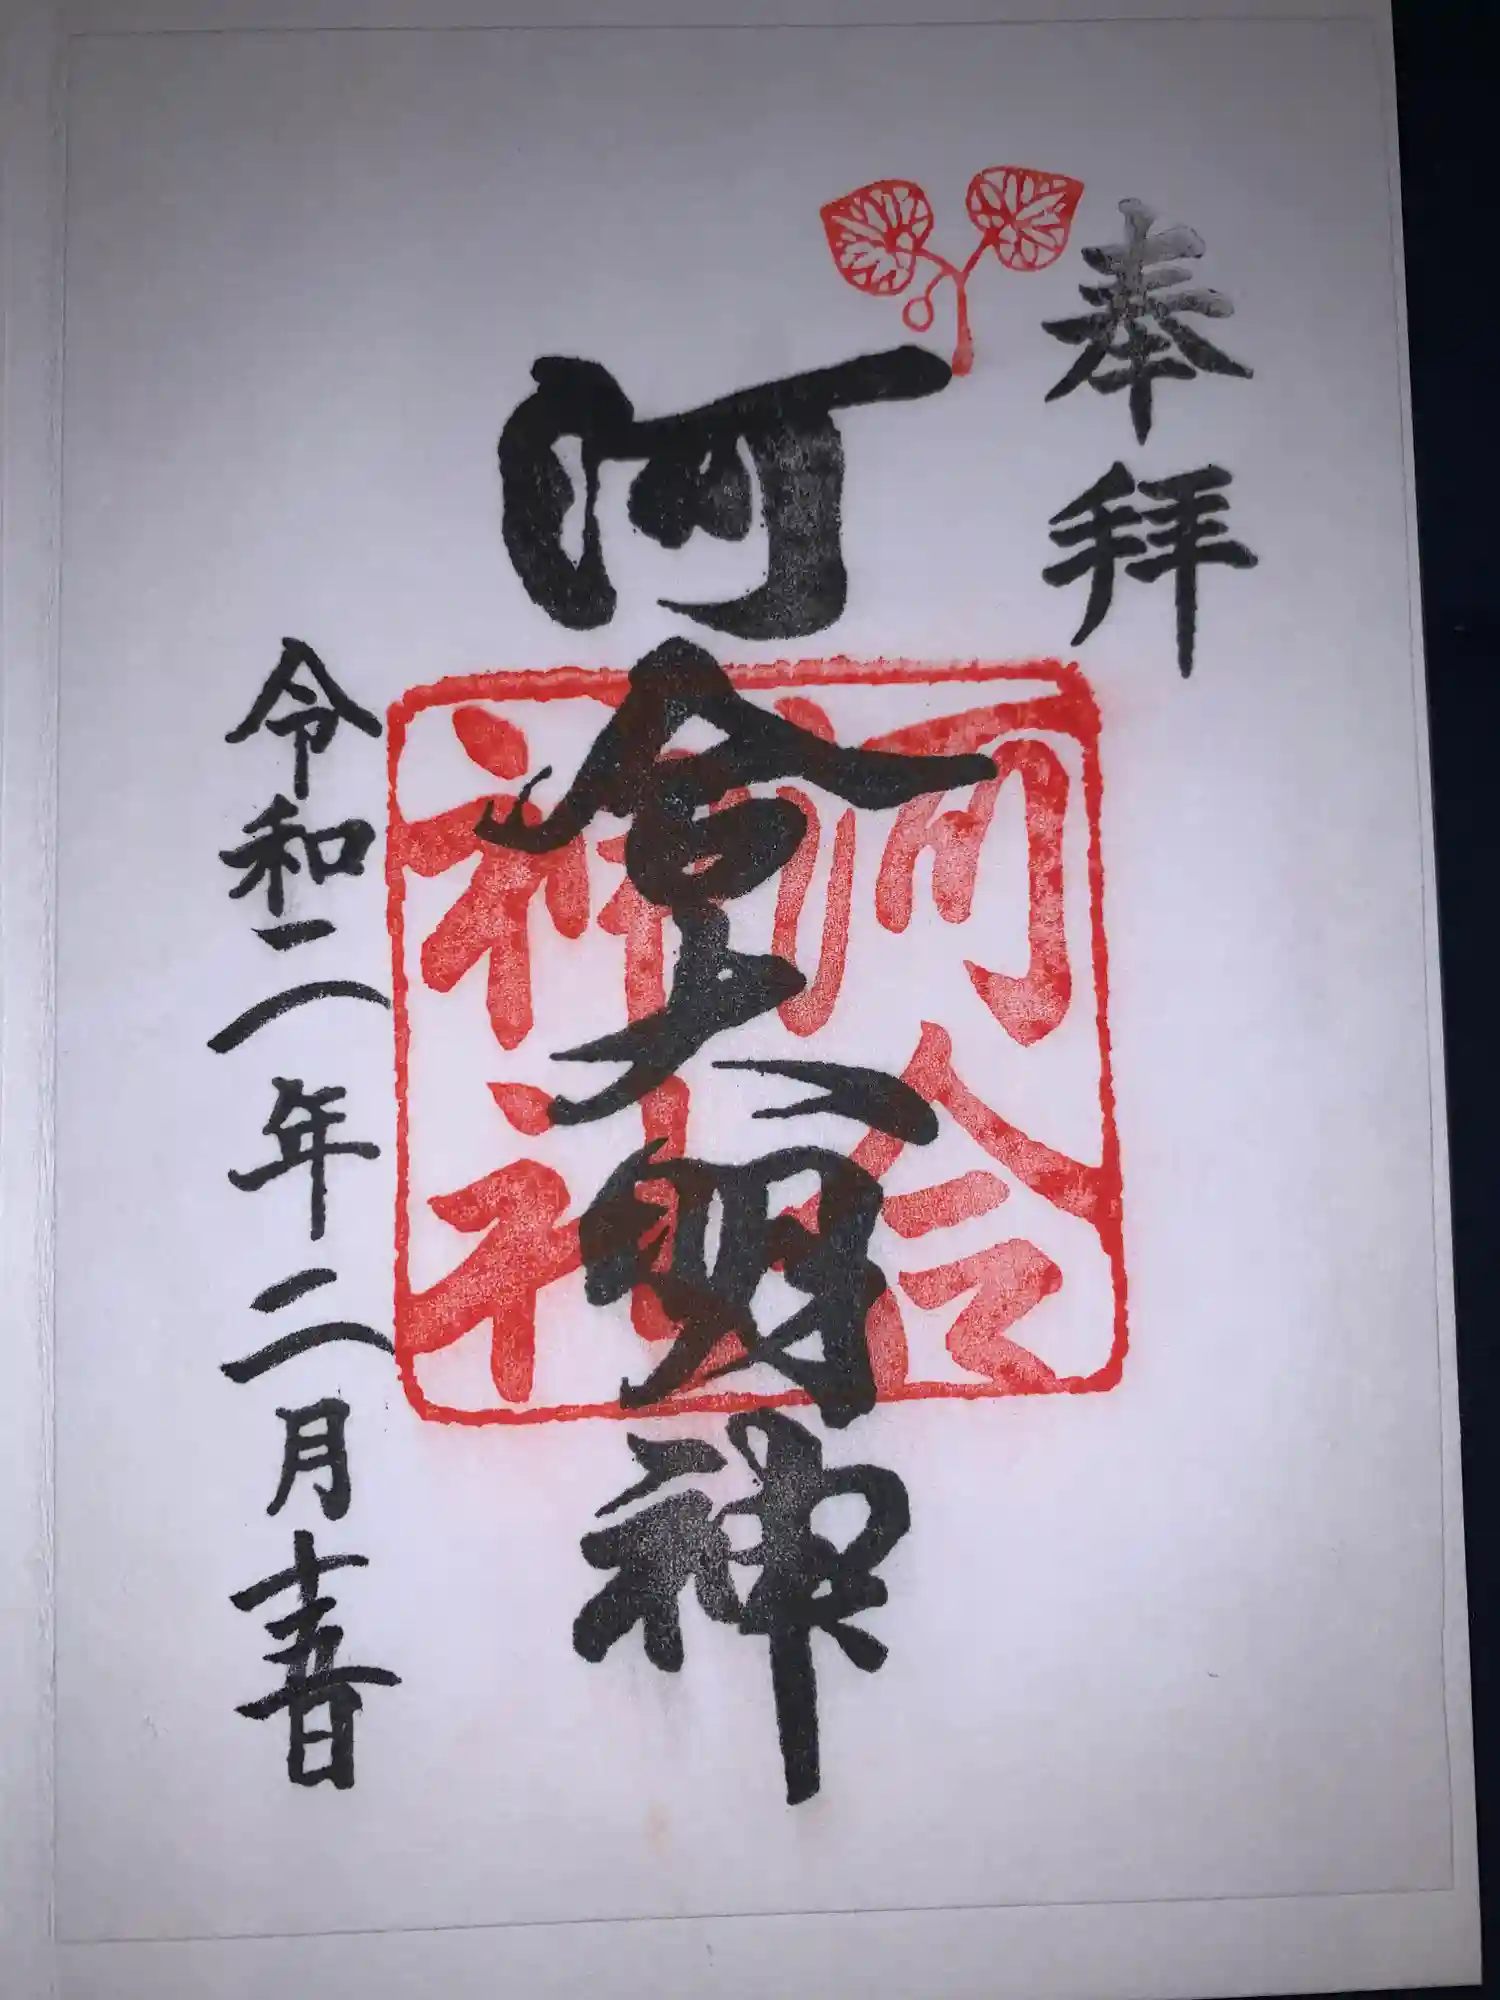 奉拝
河合大明神
河合
神社
令和二年二月十五日